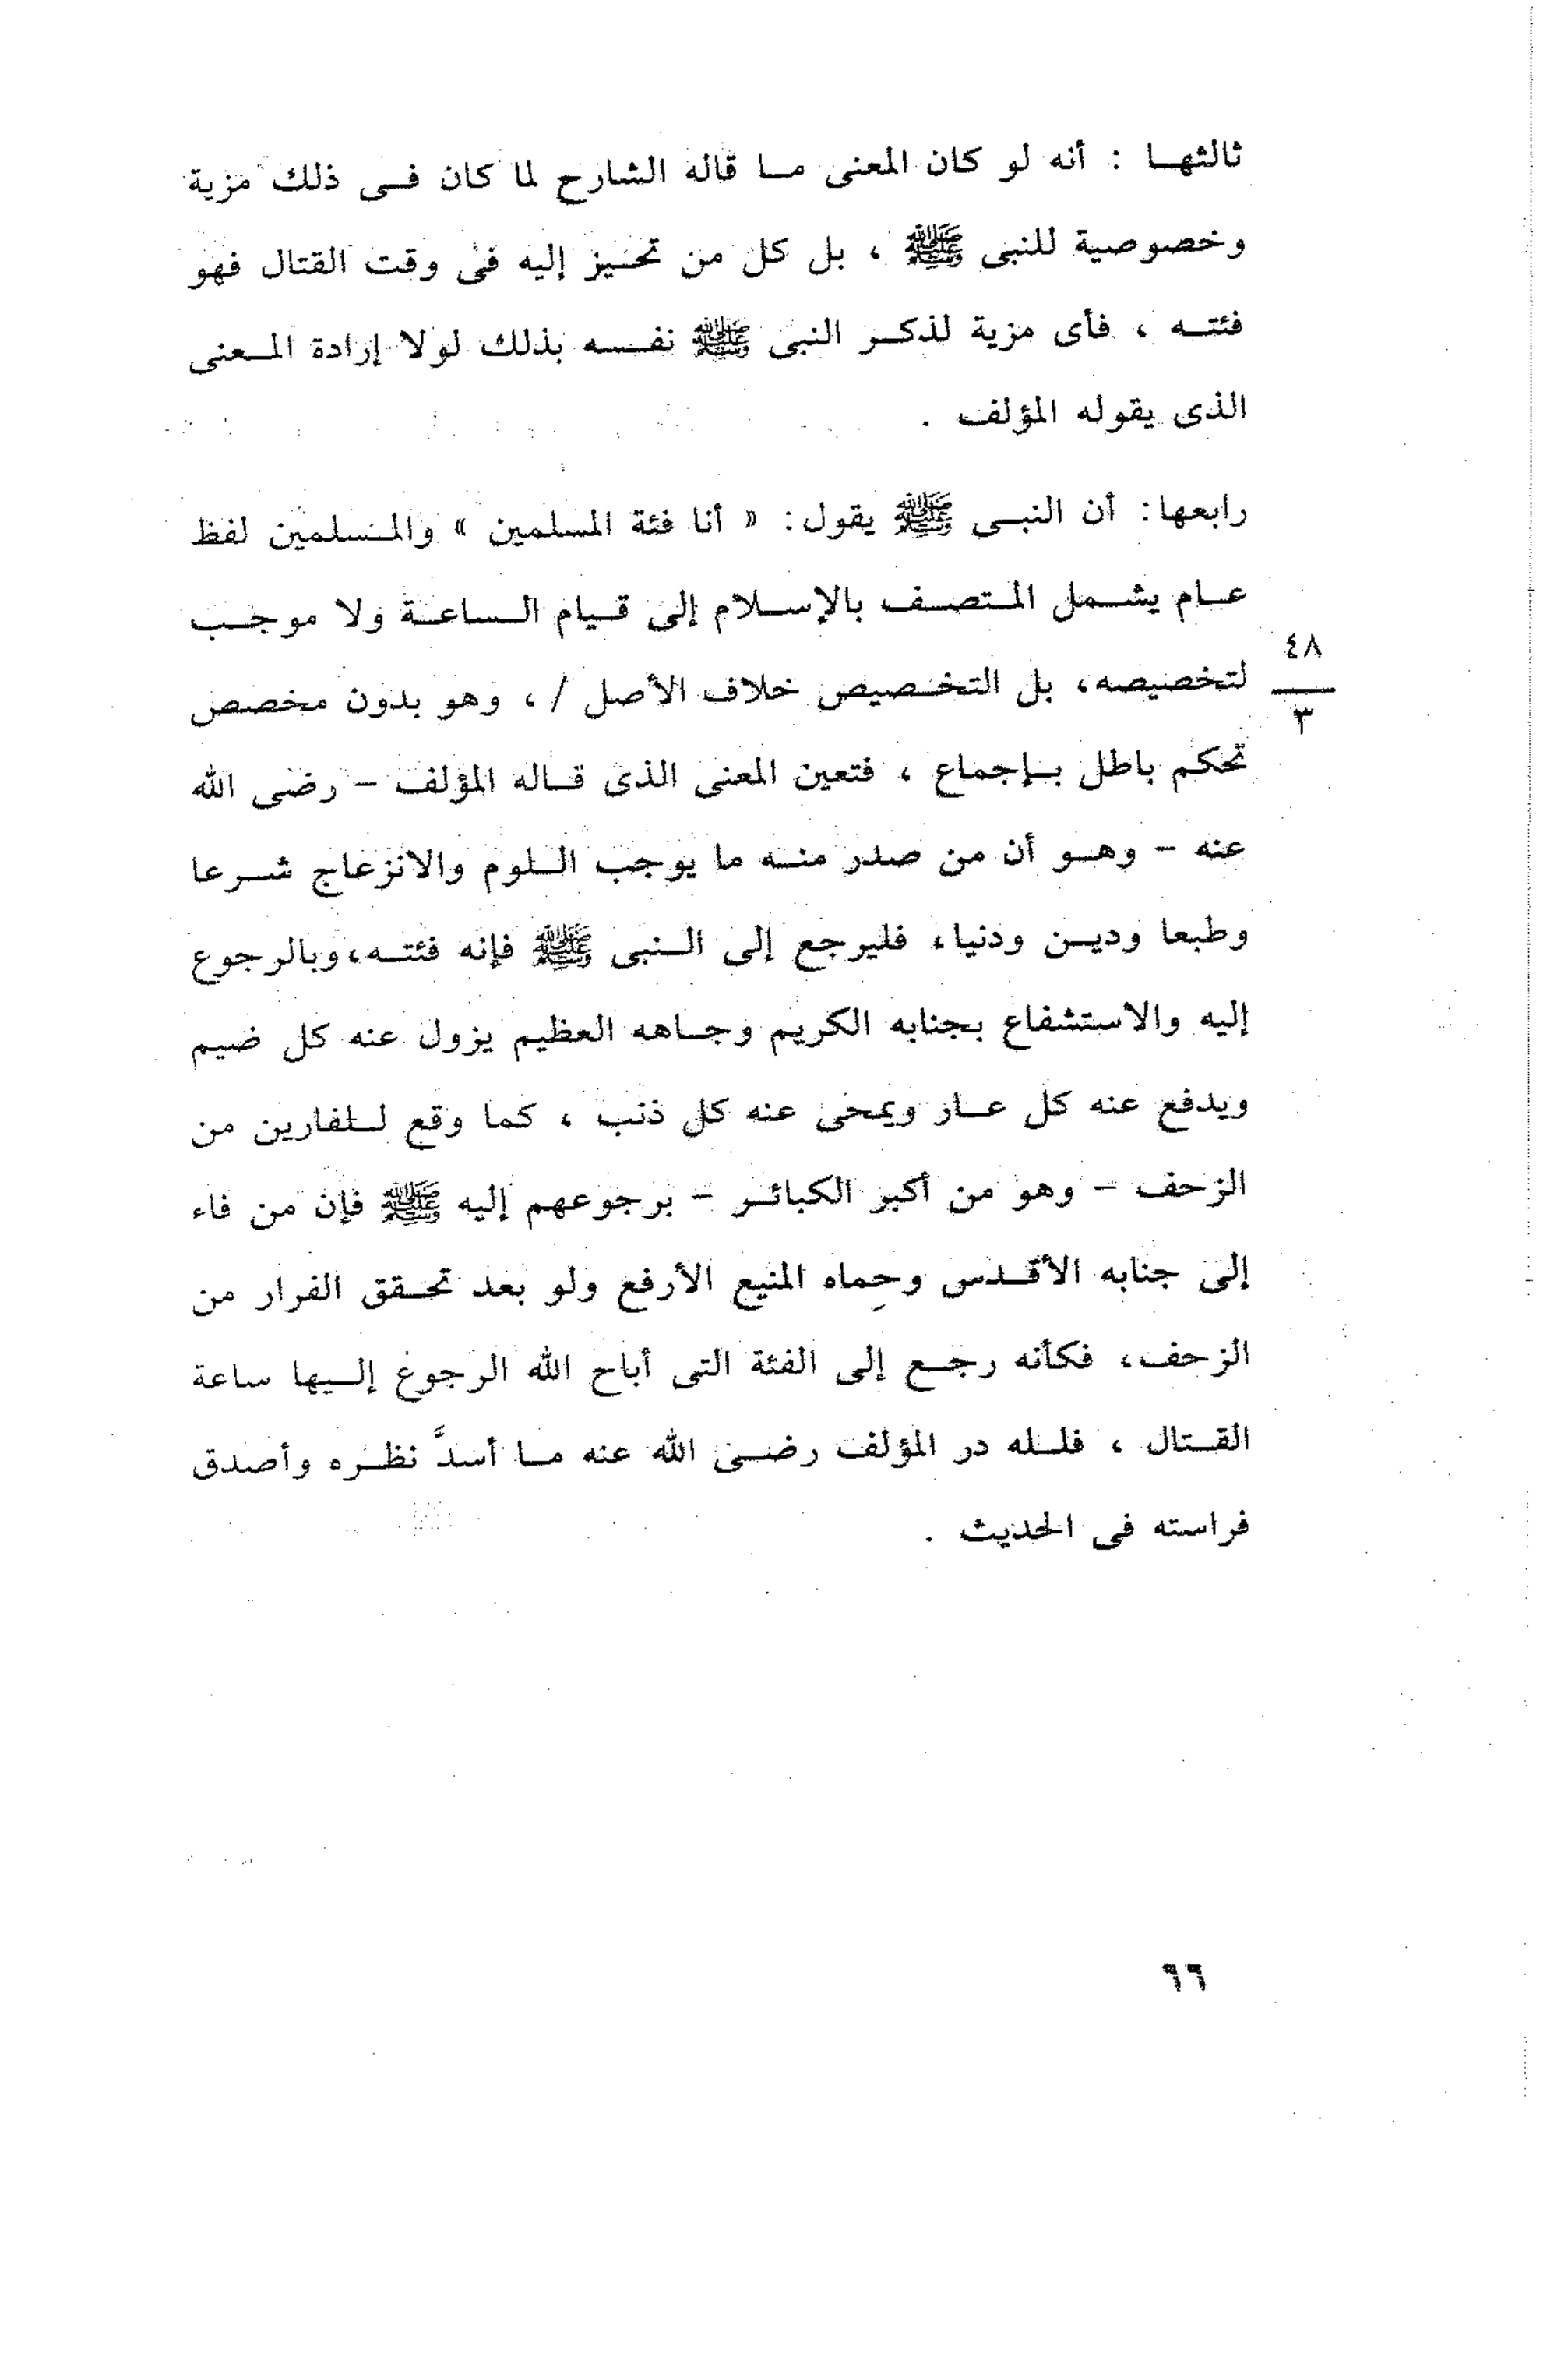 ثالثها : أنه لو كان المعنى ما قاله الشارح لما كان فى ذلك مزية
وخصوصية للنبى ﷺ ، بل كل من تحيز إليه فى وقت القتال فهو
فئته ، فأى مزية لذكر النبى ﷺ نفسه بذلك لولا إرادة المعنى
الذى يقوله المؤلف .
رابعها: أن النبى ﷺ يقول: « أنا فئة المسلمين » والمسلمين لفظ
عام يشمل المتصف بالإسلام إلى قيام الساعة ولا موجب
لتخصيصه، بل التخصيص خلاف الأصل / ، وهو بدون مخصص
٤٨
٣
تحكم باطل بإجماع ، فتعين المعنى الذى قاله المؤلف – رضى الله
عنه – وهو أن من صدر منه ما يوجب اللوم والانزعاج شرعا
وطبعا ودين ودنياء فليرجع إلى النبى ﷺ فإنه فئته، وبالرجوع
إليه والاستشفاع بجنابه الكريم وجاهه العظيم يزول عنه كل ضيم
ويدفع عنه كل عار ويمحى عنه كل ذنب ، كما وقع للفارين من
الزحف – وهو من أكبر الكبائر – برجوعهم إليه ﷺ فإن من فاء
إلى جنابه الأقدس وحِماه المنيع الأرفع ولو بعد تحقق الفرار من
الزحف، فكأنه رجع إلى الفئة التى أباح الله الرجوع إليها ساعة
القتال ، فلله در المؤلف رضى الله عنه ما أسدَّ نظره وأصدق
فراسته فى الحديث .
٦٦